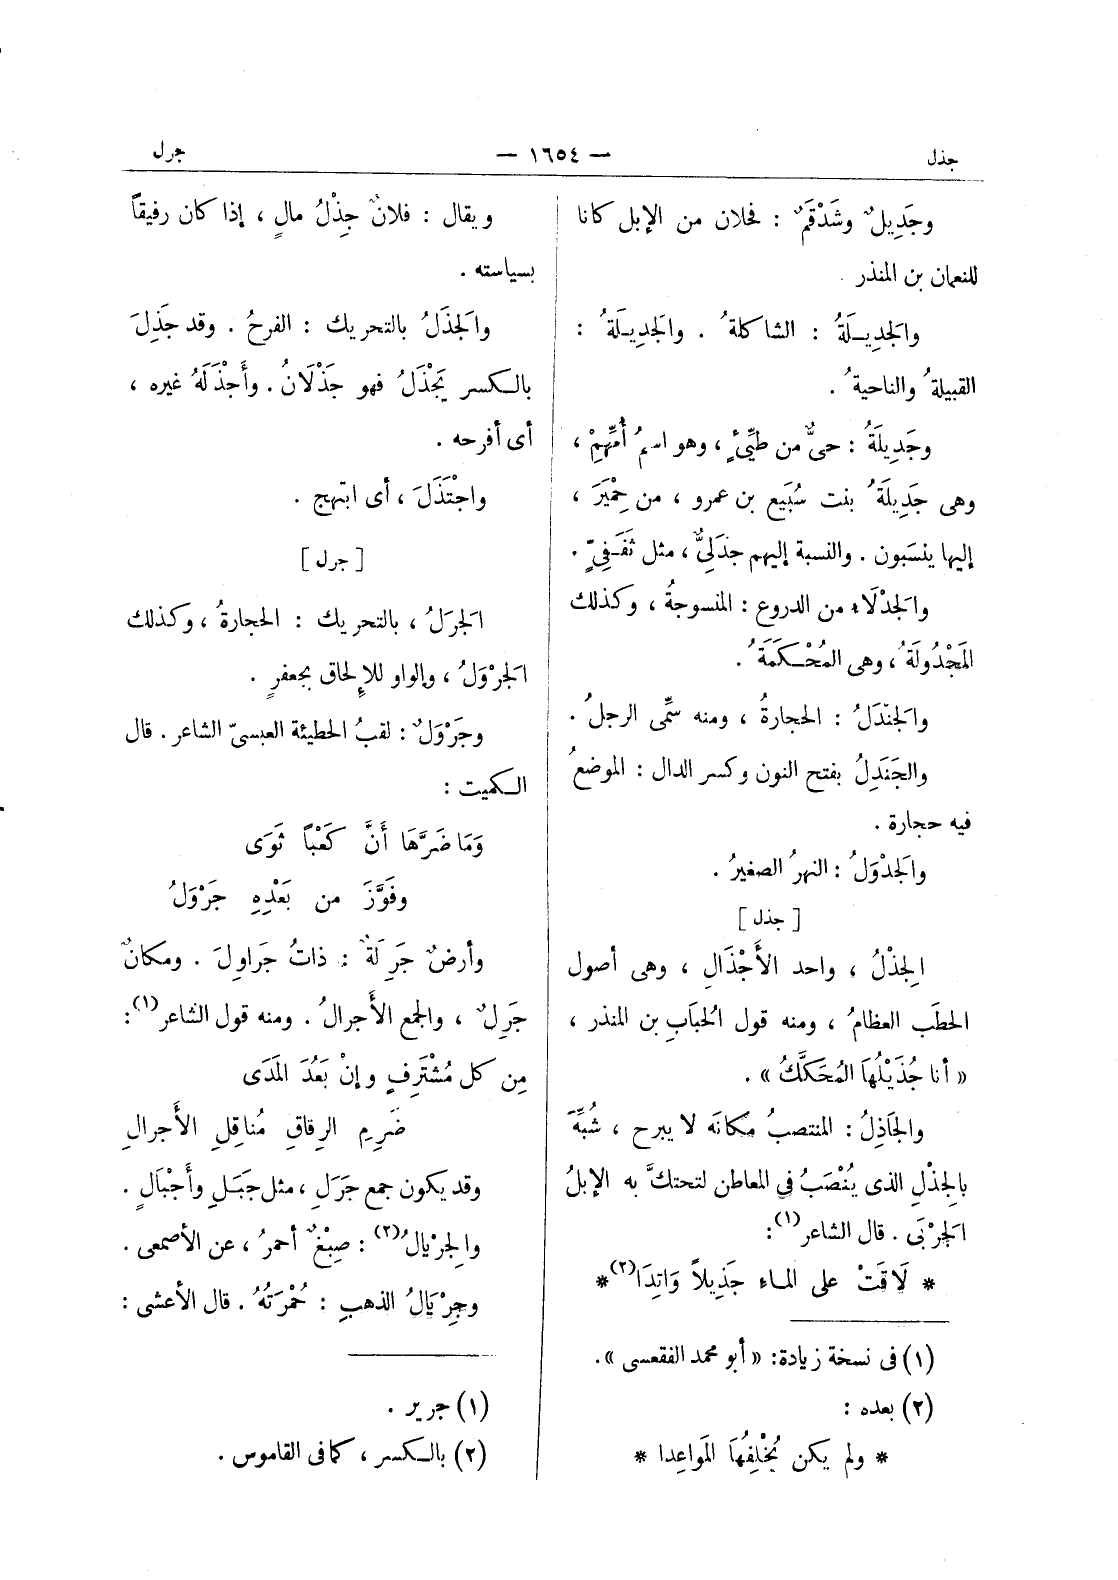 جذل — ١٦٥٤ — جرل
وجَدِيلٌ وشَدْقَمٌ : فحلان من الإبل كانا
للنعمان بن المنذر .
والجَدِيـلَةُ : الشاكلةُ . والجَدِيـلَةُ :
القبيلةُ والناحيةُ .
وجَدِيلَةُ : حىٌّ من طيِّئٍ ، وهو اسمُ أُمِّهِمْ ،
وهى جَدِيلَةُ بنت سُبَيع بن عمرو ، من حِمْيَرَ ،
إليها ينسَبون . والنسبة إليهم جدَلىٌّ ، مثل ثَقَـفِىٍّ .
والجَدْلَاء من الدروع : المنسوجةُ ، وكذلك
المَجْدُولَةُ ، وهى المُحْـكَمَةُ .
والجَنْدَلُ : الحجارةُ ، ومنه سمِّى الرجلُ .
والجَنَدِلُ بفتح النون وكسر الدال : الموضعُ
فيه حجارة .
والجَدْوَلُ : النهرُ الصغيرُ .
[ جذل ]
الجِذْلُ ، واحد الأَجْذَالِ ، وهى أصول
الحطَب العظامُ ، ومنه قول الحُبَابِ بن المنذر ،
« أنا جُذَيْلُهَا المُحَكَّكُ » .
والجَاذِلُ : المنتصبُ مكانَه لا يبرح ، شُبِّهَ
بالجِذْلِ الذى يُنْصَبُ فى المعاطن لتحتكَّ به الإبلُ
الجَرْبَى . قال الشاعر (١) :
* لَاقَتْ على المـاءِ جَذِيلاً وَاتِدَا (٢) *
(١) فى نسخة زيادة : « أبو محمد الفقعسى » .
(٢) بعده :
* ولم يكن يُخْلِفُهَا المَواعِدا *
ويقال : فلانٌ جِذْلُ مالٍ ، إذا كان رفيقاً
بسياسته .
والجَذَلُ بالتحريك : الفرحُ . وقد جَذِلَ
بالـكسر يَجْذَلُ فهو جَذْلَانُ . وأَجْذَلَهُ غيره ،
أى أفرحه .
واجْتَذَلَ ، أى ابتهج .
[ جرل ]
الجَرَلُ ، بالتحريك : الحجارةُ ، وكذلك
الجَرْوَلُ ، والواو للإلحاق بجعفرٍ .
وجَرْوَلٌ : لقبُ الحطيئة العبسىّ الشاعر . قال
الـكميت :
وَمَا ضَرَّهَا أَنَّ كَعْباً ثَوَى
وفَوَّزَ من بَعْدِهِ جَرْوَلُ
وأرضٌ جَرِلَةٌ : ذاتُ جَراوِلَ . ومكانٌ
جَرِلٌ ، والجمع الأَجرالُ . ومنه قول الشاعر (١) :
مِن كل مُشْتَرِفٍ وإنْ بَعُدَ المَدَى
ضَرِمِ الرِقاقِ مُناقِلِ الأَجرالِ
وقد يكون جمع جَرَلٍ ، مثل جَبَـلٍ وأَجْبَالٍ .
والجِرْيالُ (٢) : صِبْغٌ أحمرُ ، عن الأصمعى .
وجِرْيَالُ الذهبِ : حُمْرَتُهُ . قال الأعشى :
(١) جرير .
(٢) بالـكسر ، كما فى القاموس .